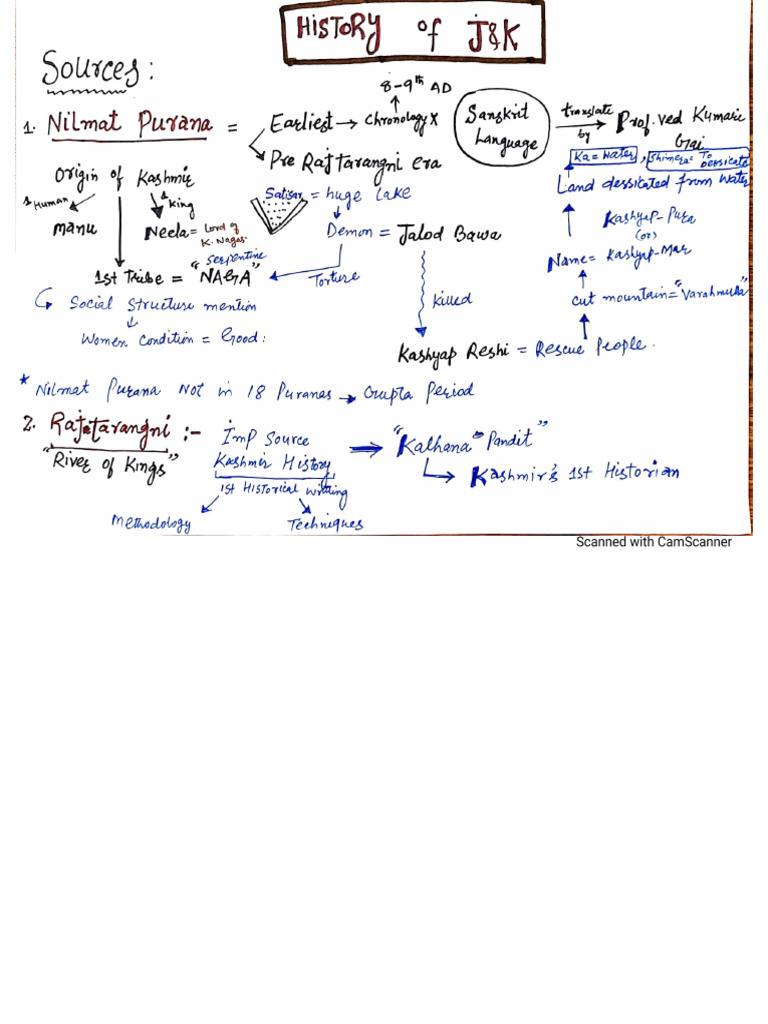 HISTORY of J&K
Sources:
8-9th AD
1. Nilmat Purana = Earliest → Chronology X
Sanskrit Language
translate by
Prof. Ved Kumari Gai
Pre Rajtarangni era
Ka = Water, Shimera = To Dessicate
Origin of Kashmir
Satisar = huge lake
Land dessicated from water
1st Human
1st King
manu
Neela = Lord of K. Nagas.
Demon = Jalod Bawa
Kashyap-Pura
(or)
Name = Kashyap-Mar
"Serpentine
1st Tribe = "NAGA"
Torture
Social Structure mention
killed
cut mountain = "Varahmulla"
Women Condition = Good:
Kashyap Reshi = Rescue People.
* Nilmat Purana Not in 18 Puranas → Gupta Period
2. Rajatarangni :- Imp Source → "Kalhana Pandit"
"River of Kings"
Kashmir History
→ Kashmir's 1st Historian
1st Historical writing
Methodology
Techniques
Scanned with CamScanner